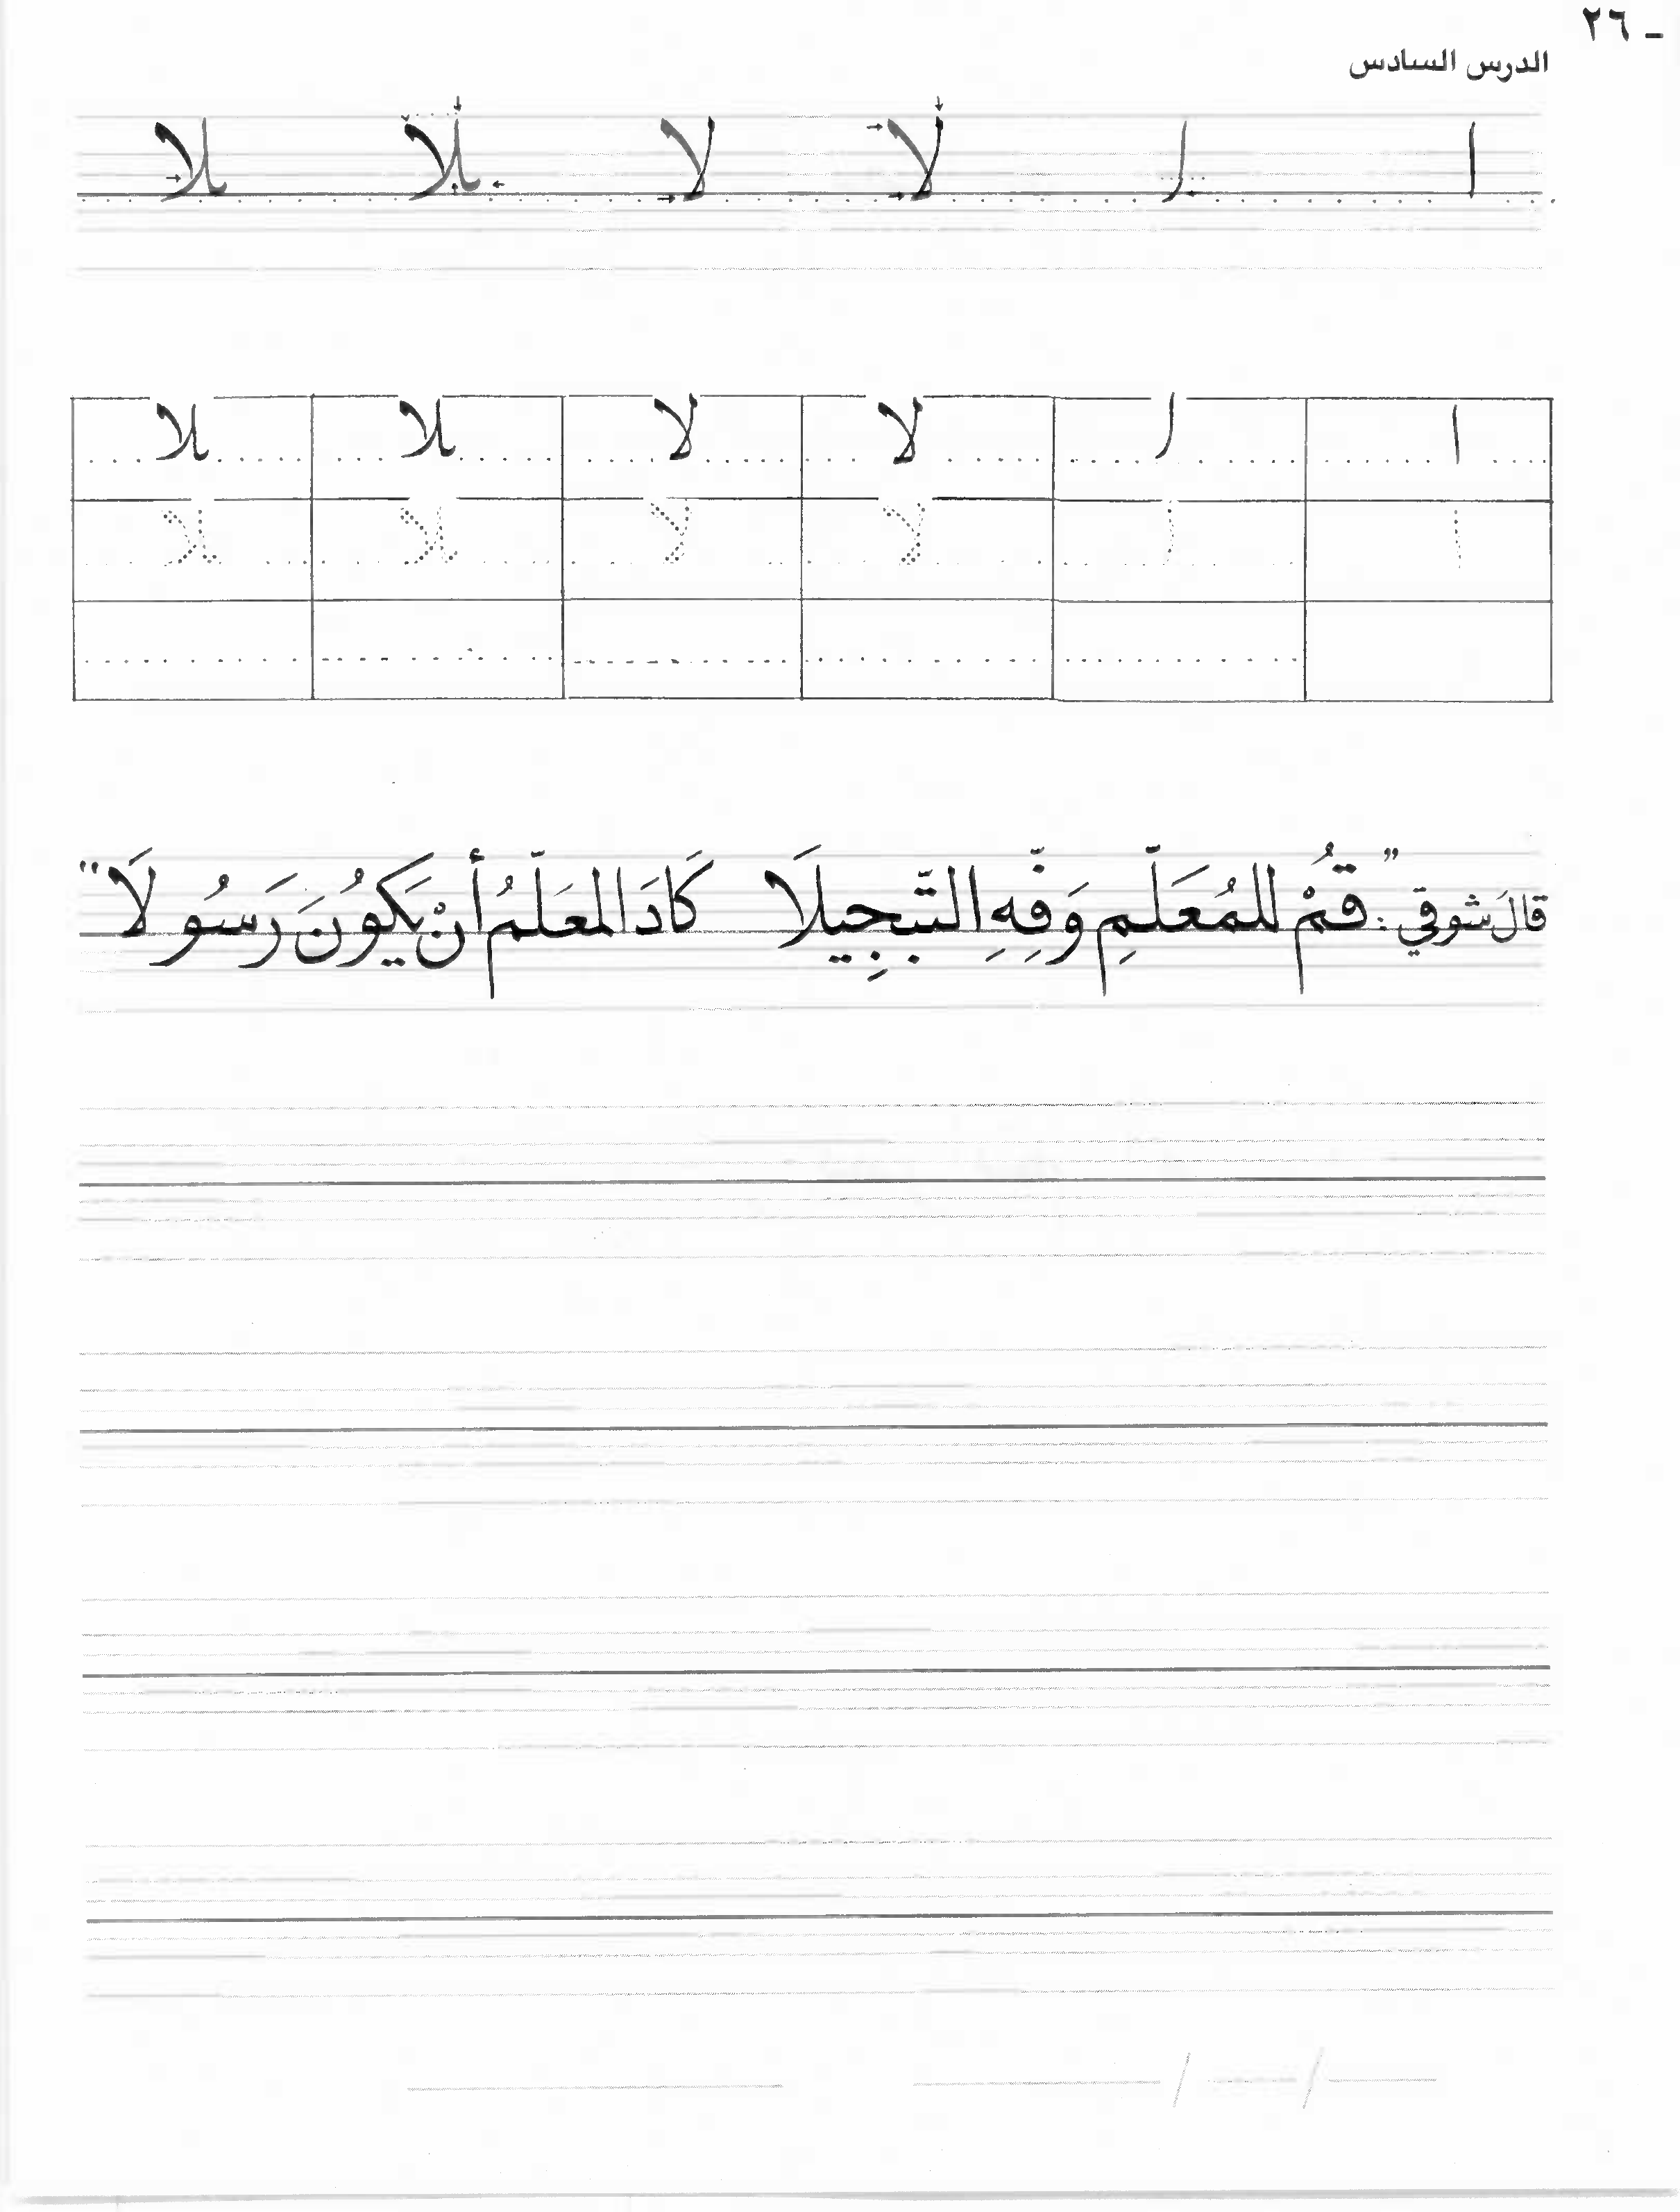 ٢٦ -
الدرس السادس
ا ا لا لا ﻼ ﻼ
ا ا لا لا ﻼ ﻼ
ا ا لا لا ﻼ ﻼ
قالَ شوقي : ”قُمْ للمُعَلّمِ وَفِّهِ التّبجِيلَا كَادَ المعَلّمُ أنْ يَكوُنَ رَسوُلَا“